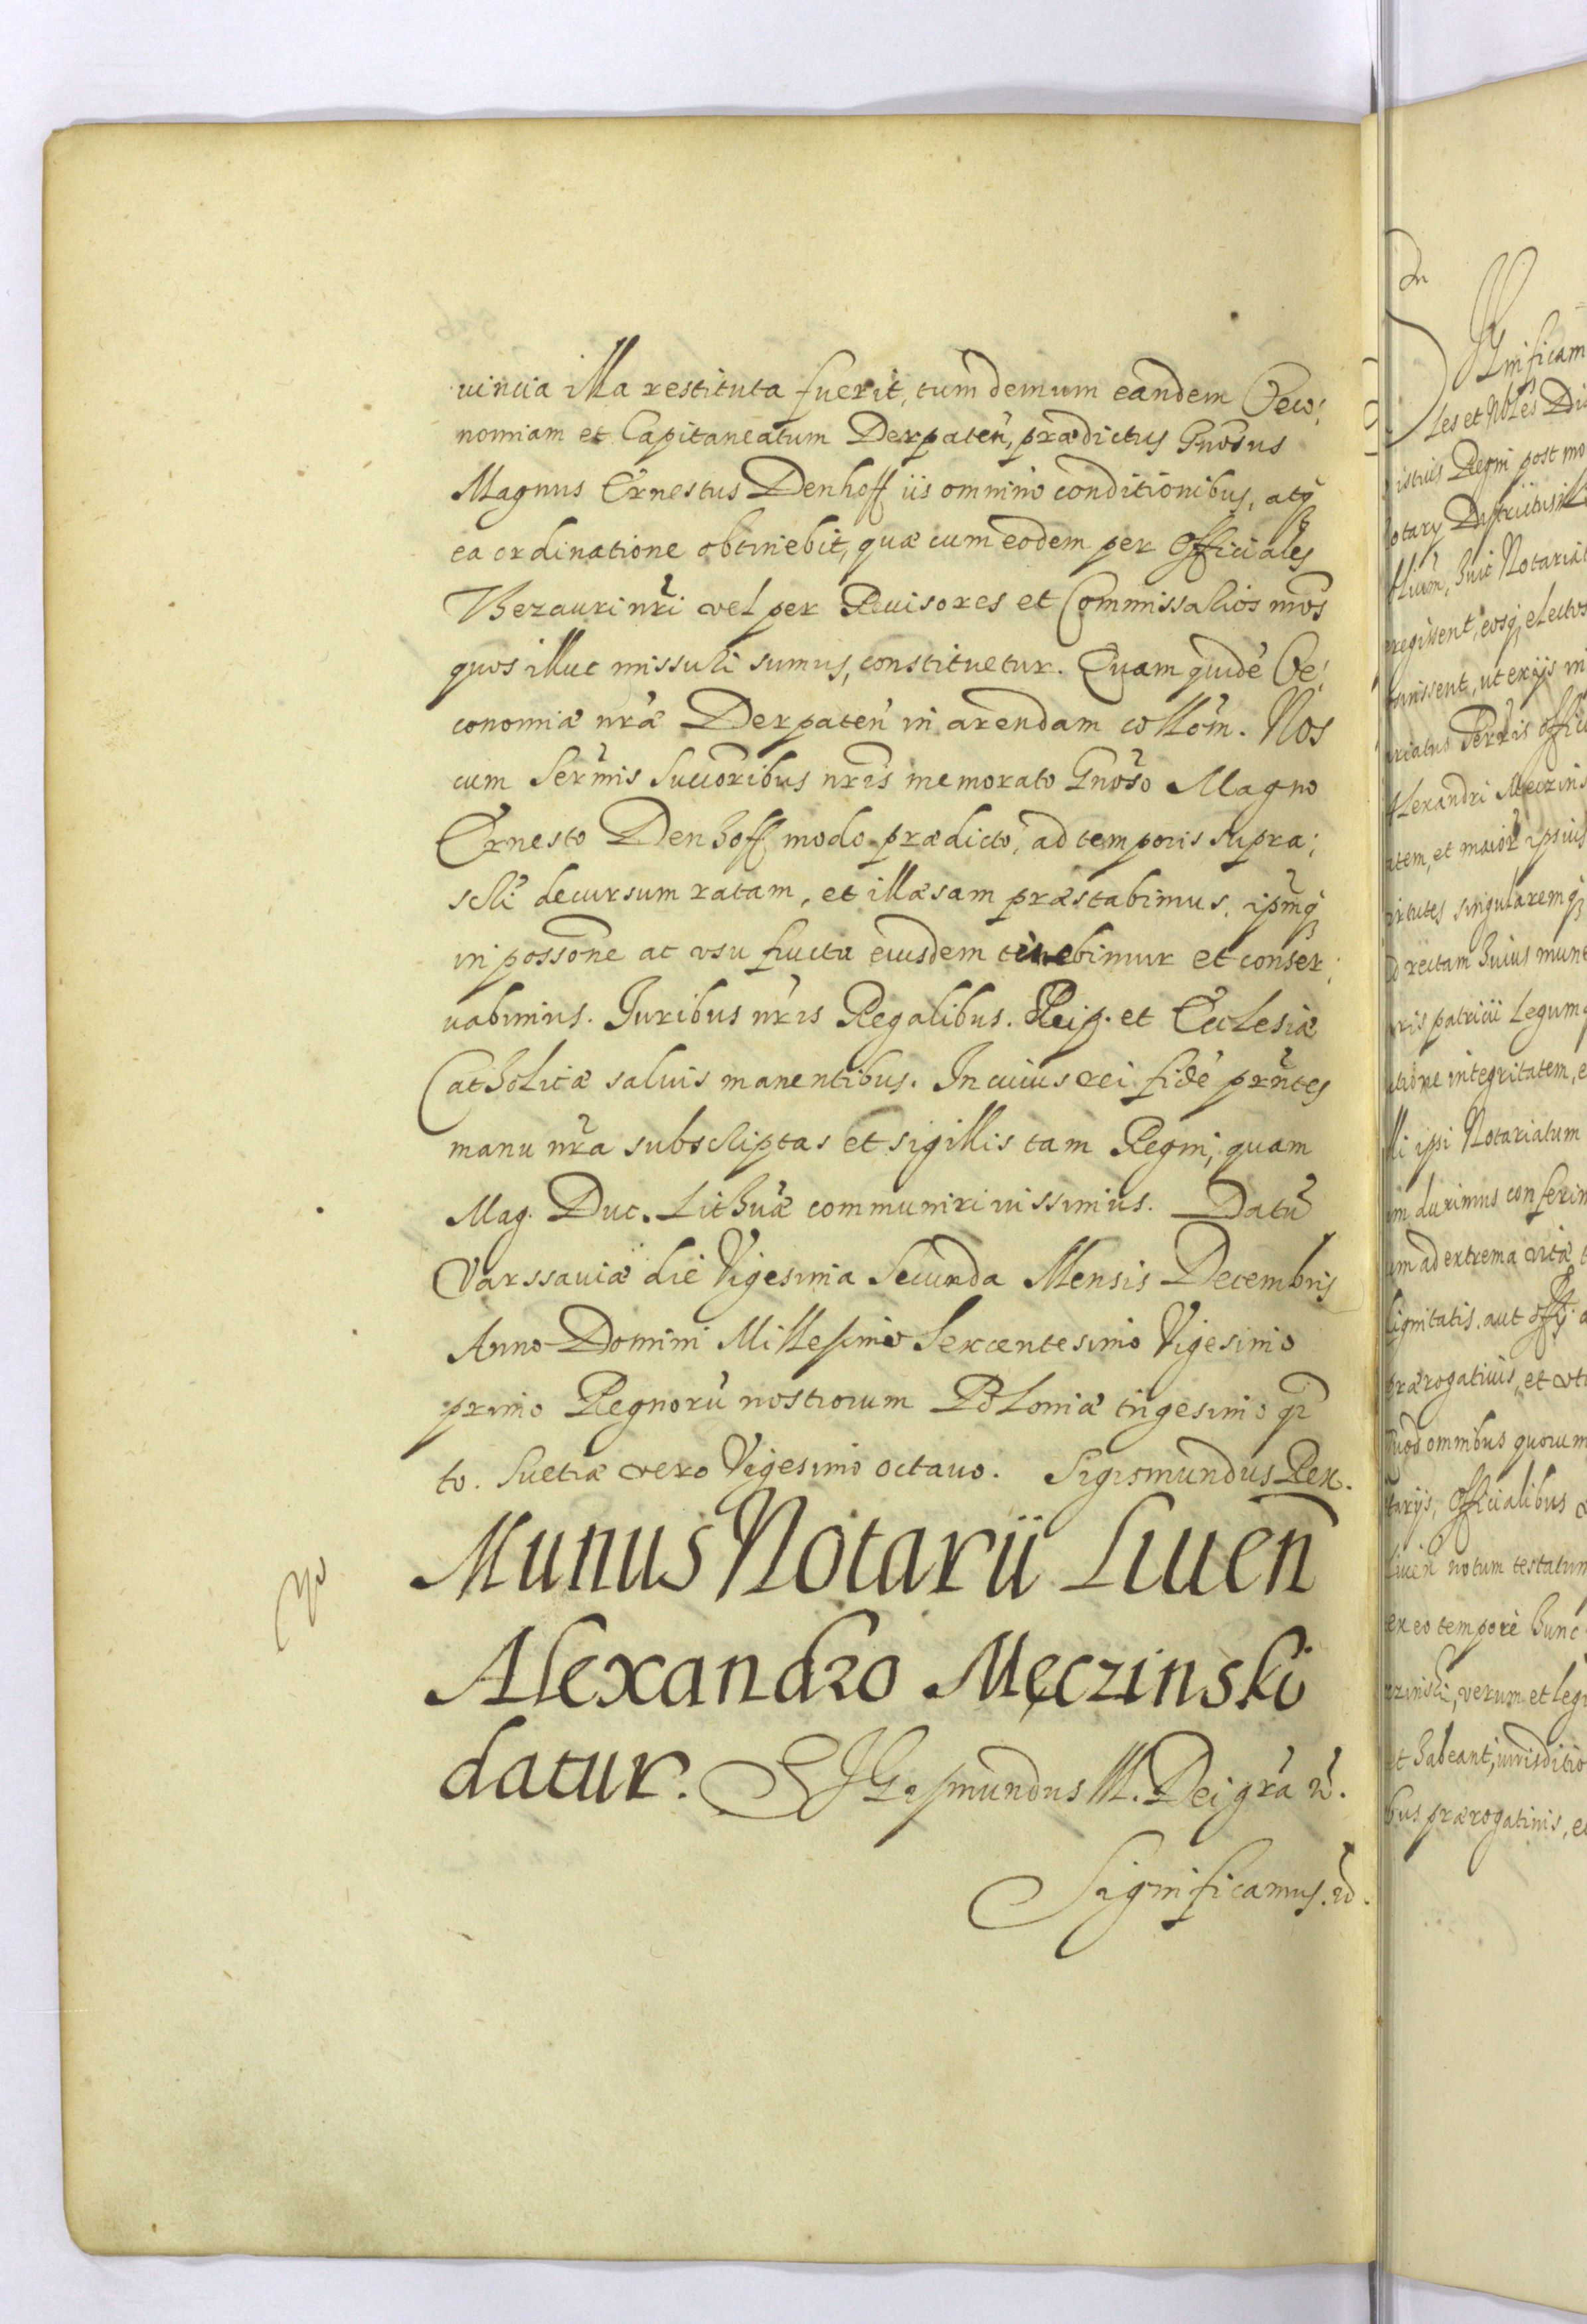 uincia illa restituta fuerit, tum demum eandem Oeco:
nomiam et Capitaneatum Derpateñ, prædictus Gnosus
Magnus Ernestus Denhoff iis omnino conditionibus, atq
ea ordinatione obtinebit, quæ cum eodem per Officiales
Thezauri nri vel per Reuisores et Commissarios nros
quos illuc missuri sumus, constituetur. Quam quidé Oe:
conomiæ nræ Derpateñ in arendam collom. Nos
cum Sermis Succoribus nris memorato Gnoso Magno
Ernesto Denhoff modo prædicto, ad temporis supra:
scti decursum ratam, et illæsam præstabimus, ipmq
in possone ac vsu fructu eiusdem tenebimur et conser:
uabimus. Juribus nris Regalibus. Reip. et Ecclesiæ
Catholicæ saluis manentibus. In cuius rei fidé prntes
manu nra subscriptas et sigillis tam Regni, quam
Mag. Duc. Lithuæ communiri iussimus. Datū
Varssauiæ die Vigesima Secunda Mensis Decembris
Anno Domini Millesimo Sexcentesimo Vigesimo
primo Regnorū nostrorum Poloniæ trigesimo qr
to. Suetiæ vero Vigesimo octauo. Sigismundus Rex.
Munus Notarii Liueñ
Alexandro Męczinski
datur. SIGismundus III. Dei gra
Significamus.
Gnificam
les et Nobles
istius Regni post mo
Districtus
huic Notariat
eosq electos
ut ex iys in
Alexandri Meczins
et maiorē ipsius
singularemq
rectam huius mune
patrii Legumq
integritatem, e
ipsi Notariatum
duximus conferim
ad extrema vitæ t
aut
et vti
omnibus quorum
Officialibus
notum testatum
ex eo tempore hunc
verum et legi
habeant, iurisditio
prærogatiuis, et